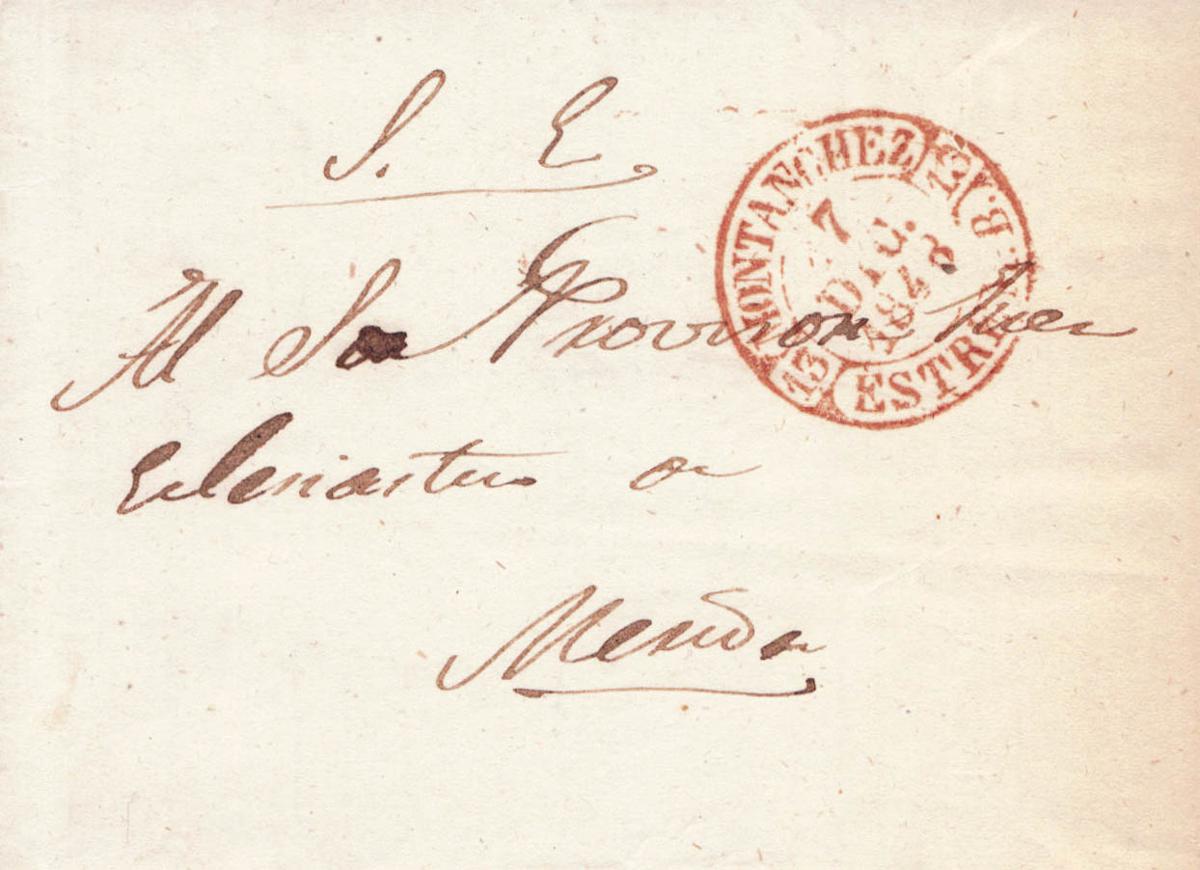 S. E.
MONTANCHEZ
7
DIC.
1848
13
ESTRE
Al Sor Provisor Juez
Eclesiastico de
Merida